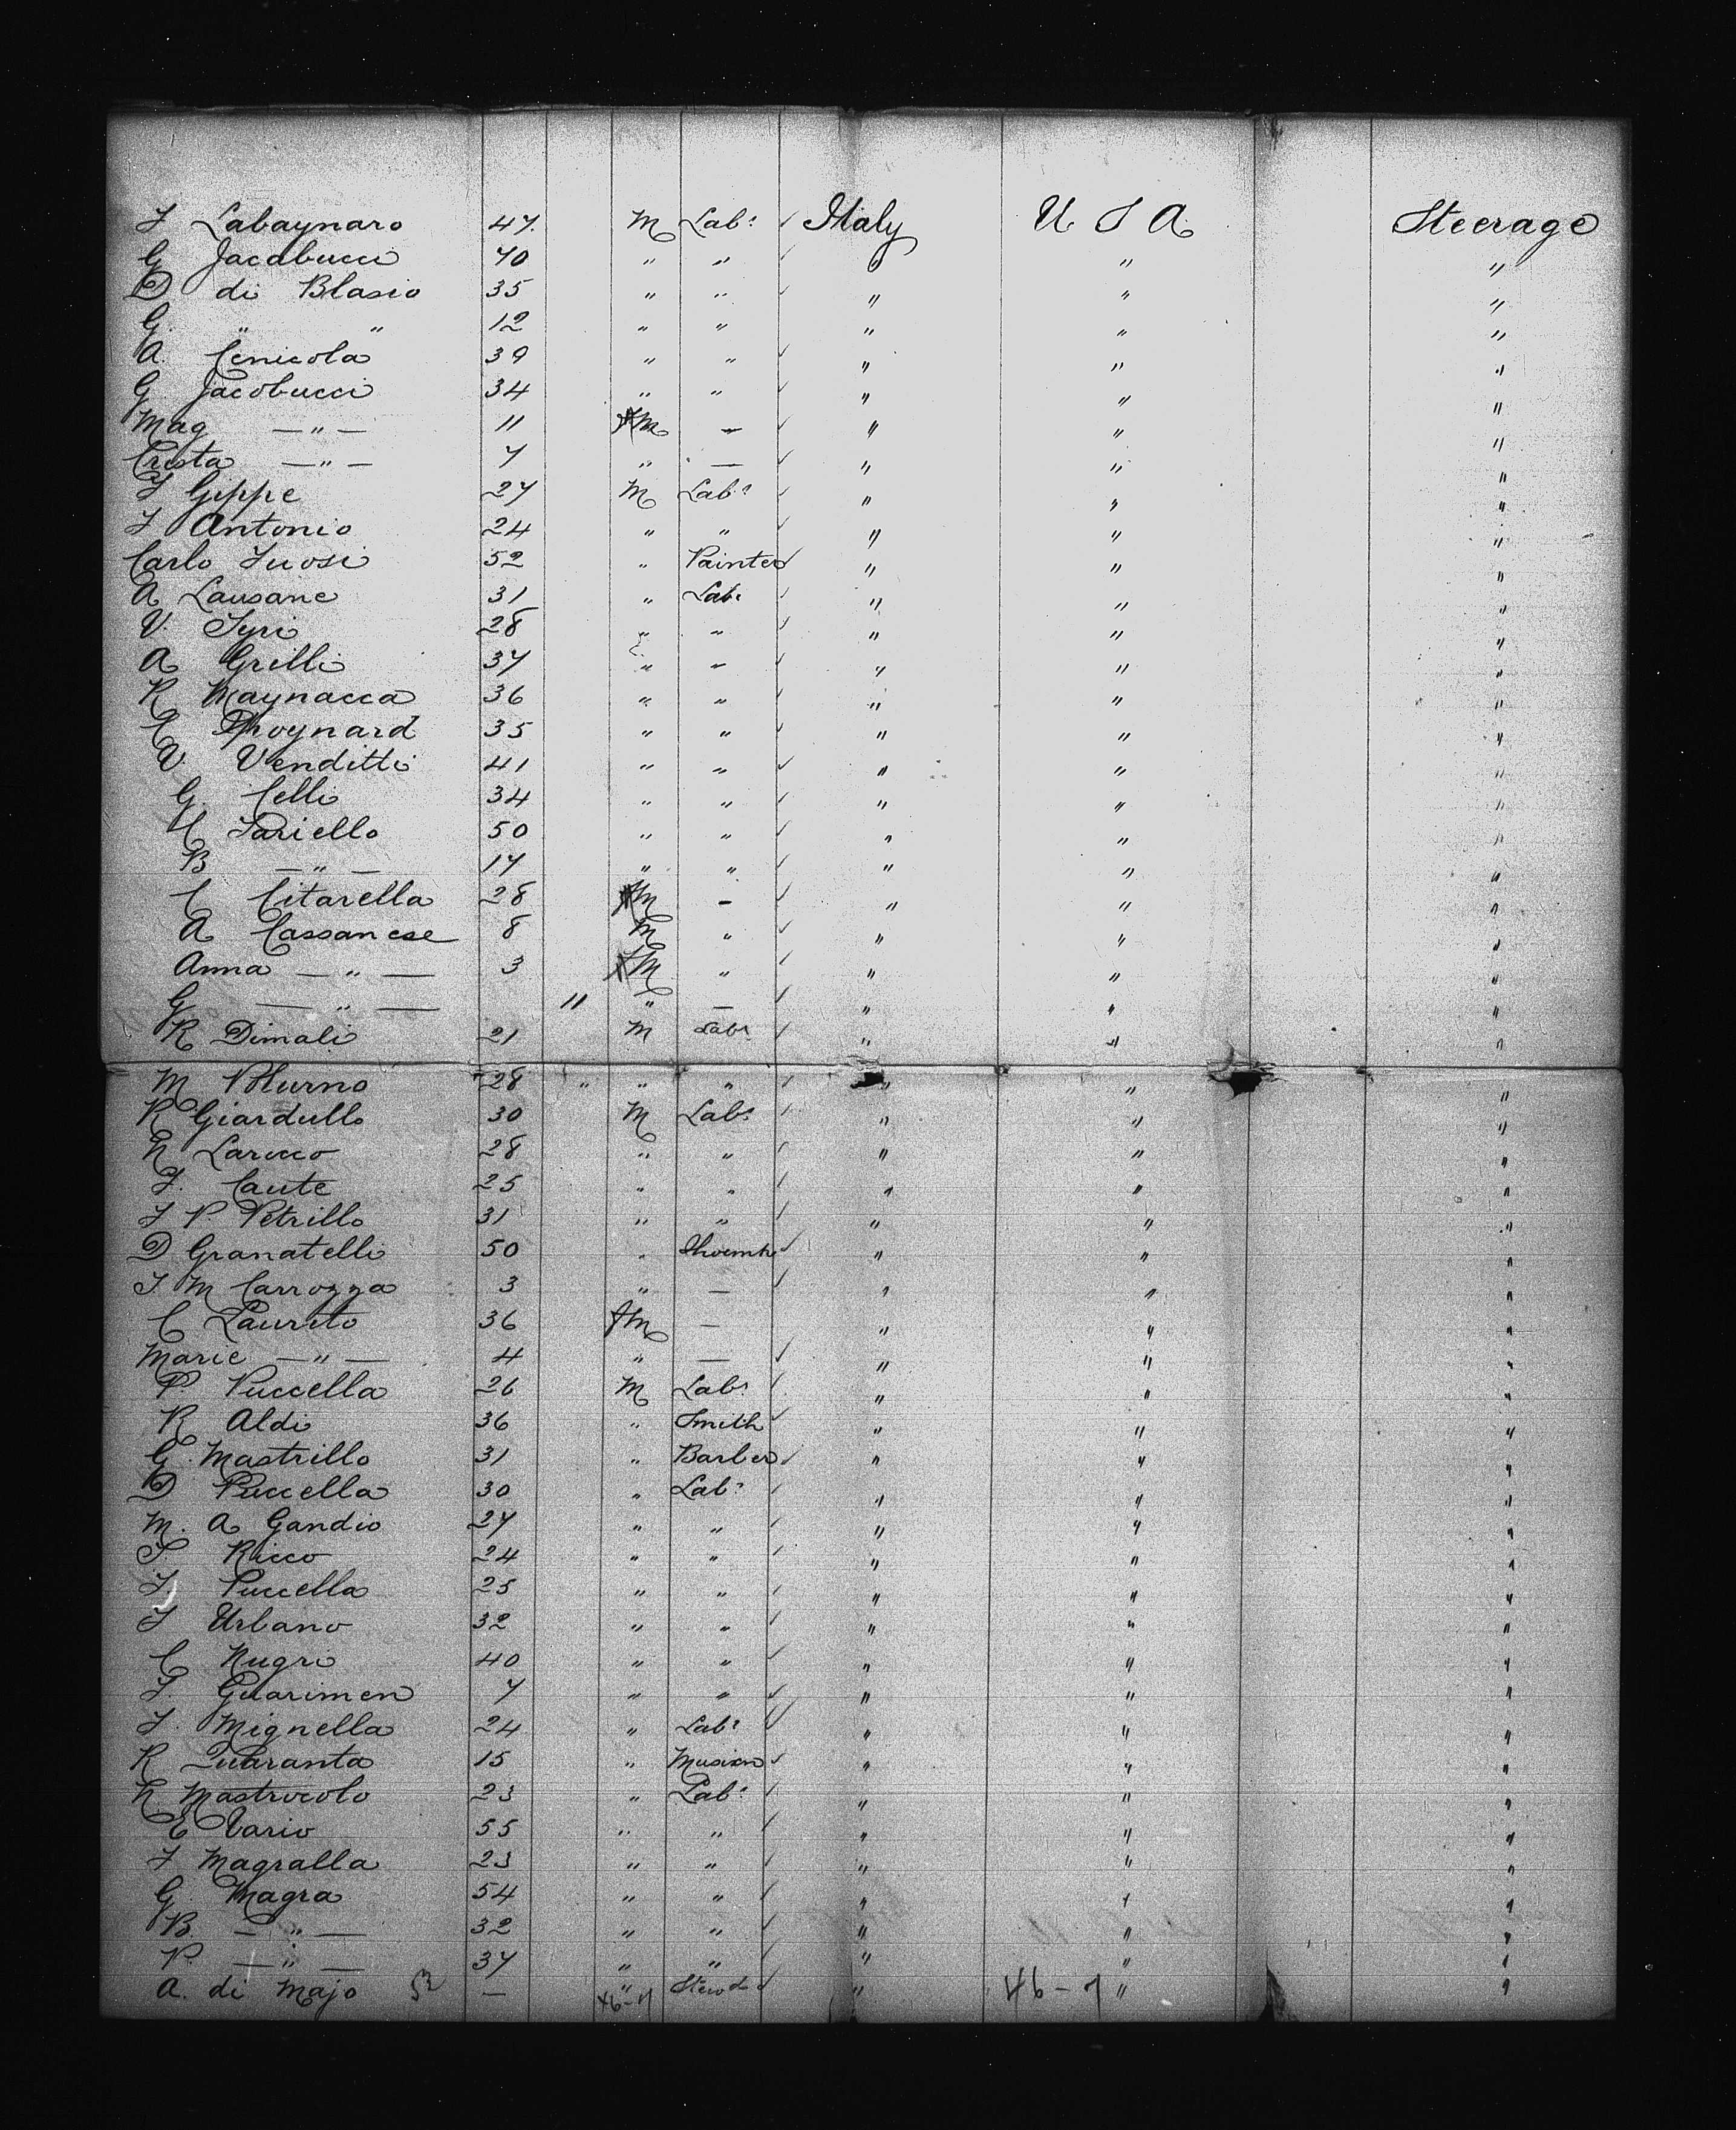 F Labaynaro 47. M Labr ✓ Italy U S A Steerage
G Jacobucci 40 " " ✓ " " "
D di Blasio 35 " " ✓ " " "
G. " " 12 " " " " "
A. Cenicola 39 " " ✓ " " "
G Jacobucci 34 " " ✓ " " "
Mag — " — 11 M — ✓ " " "
Crista — " — 7 " — ✓ " " "
F Gippe 27 M Labr ✓ " " "
F Antonio 24 " " ✓ " " "
Carlo 52 " Painter ✓ " " "
A Lausane 31 " Labr ✓ " " "
V. Syri 28 " " ✓ " " "
A Grilli 37 " " ✓ " " "
R Maynacca 36 " " ✓ " " "
35 " " ✓ " " "
V. Venditti 41 " " ✓ " " "
G. Celli 34 " " ✓ " " "
Pariello 50 " " ✓ " " "
B — " — 17 " " ✓ " " "
C Citarella 28 M - ✓ " " "
A Cassanese 8 M " ✓ " " "
Anna — " — 3 M " ✓ " " "
G — " — 11 " — ✓ " " "
R Dimali 21 M Labr ✓ " " "
M Volturno 28 " " " ✓ " " "
R Giardullo 30 M Labr ✓ " " "
N Larocco 28 " " ✓ " " "
F. Caute 25 " " ✓ " " "
F P. Petrillo 31 " " ✓ " " "
D Granatelli 50 " Shoemkr ✓ " " "
F. M Carrozza 3 " — ✓ " " "
C Laurito 36 fM — " " "
Marie — " — 4 " — ✓ " " "
P. Puccella 26 M Labr ✓ " " "
R Aldi 36 " Smith ✓ " " "
G. Mastrillo 31 " Barber ✓ " " "
D Puccella 30 " Labr ✓ " " "
M. A Gandio 27 " " ✓ " " "
S Ricco 24 " " ✓ " " "
F. Puccella 25 " " ✓ " " "
F Urbano 32 " " ✓ " " "
C Nugri 40 " " ✓ " " "
F. Guarimen 7 " " ✓ " " "
F. Mignella 24 " Labr ✓ " " "
R Quaranta 15 " Musicn ✓ " " "
N Mastrocolo 23 " Labr ✓ " " "
E Vario 55 " " ✓ " " "
F Magralla 23 " " ✓ " " "
G. Magra 54 " " ✓ " " "
B — " — 32 " " ✓ " " "
P. — " — 37 " " ✓ " " "
A. di Majo 53 — " Stewd ✓ " 46-7 " "
46-7